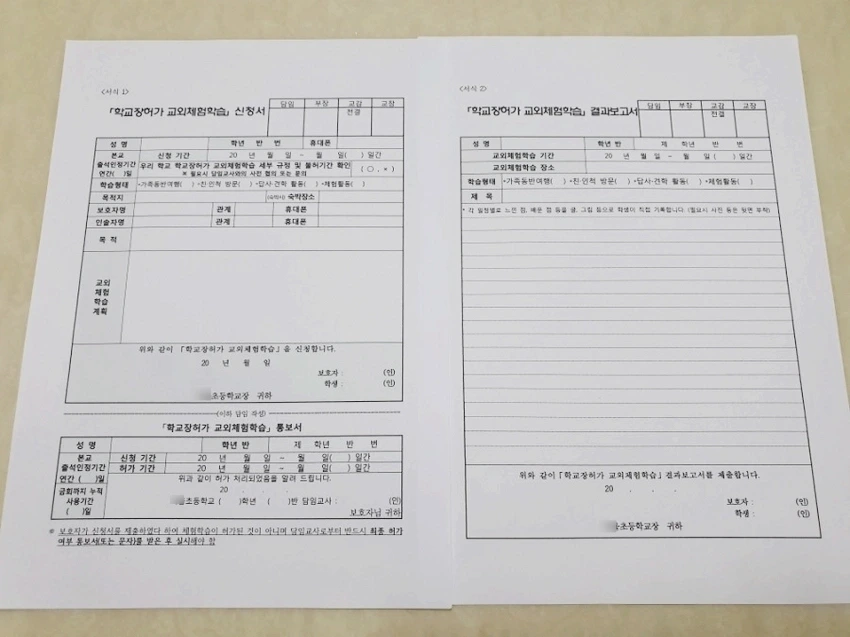 <서식 1>
「학교장허가 교외체험학습」 신청서
담임 부장 교감 교장
전결
성 명 학년 반 번 휴대폰
본교 출석인정기간 연간( )일
신청 기간 20 년 월 일 ~ 월 일( ) 일간
우리 학교 학교장허가 교외체험학습 세부 규정 및 불허기간 확인
※ 필요시 담임교사와의 사전 협의 또는 문의
학습형태 •가족동반여행( ) •친·인척 방문( ) •답사·견학 활동( ) •체험활동( )
목적지 (숙박시) 숙박장소
보호자명 관계 휴대폰
인솔자명 관계 휴대폰
목 적
교외
체험
학습
계획
위와 같이 「학교장허가 교외체험학습」을 신청합니다.
20 년 월 일
보호자 : (인)
학생 : (인)
초등학교장 귀하
<이하 담임 작성>
「학교장허가 교외체험학습」 통보서
성 명 학년 반 제 학년 반 번
본교 출석인정기간 연간 ( )일
신청 기간 20 년 월 일 ~ 월 일( ) 일간
허가 기간 20 년 월 일 ~ 월 일( ) 일간
위과 같이 허가 처리되었음을 알려 드립니다.
금회까지 누적 사용기간 ( )일
20 . . .
초등학교 ( )학년 ( )반 담임교사 : (인)
보호자님 귀하
※ 보호자가 신청서를 제출하였다 하여 체험학습이 허가된 것이 아니며 담임교사로부터 반드시 최종 허가
여부 통보서(또는 문자)를 받은 후 실시해야 함
<서식 2>
「학교장허가 교외체험학습」 결과보고서
담임 부장 교감 교장
전결
성 명 학년 반 제 학년 반 번
교외체험학습 기간 20 년 월 일 ~ 월 일 ( ) 일간
교외체험학습 장소
학습형태 •가족동반여행( ) •친·인척 방문( ) •답사·견학 활동( ) •체험활동( )
제 목
* 각 일정별로 느낀 점, 배운 점 등을 글, 그림 등으로 학생이 직접 기록합니다. (필요시 사진 등은 뒷면 부착)
위와 같이 「학교장허가 교외체험학습」 결과보고서를 제출합니다.
20 . . .
보호자 : (인)
학생 : (인)
초등학교장 귀하